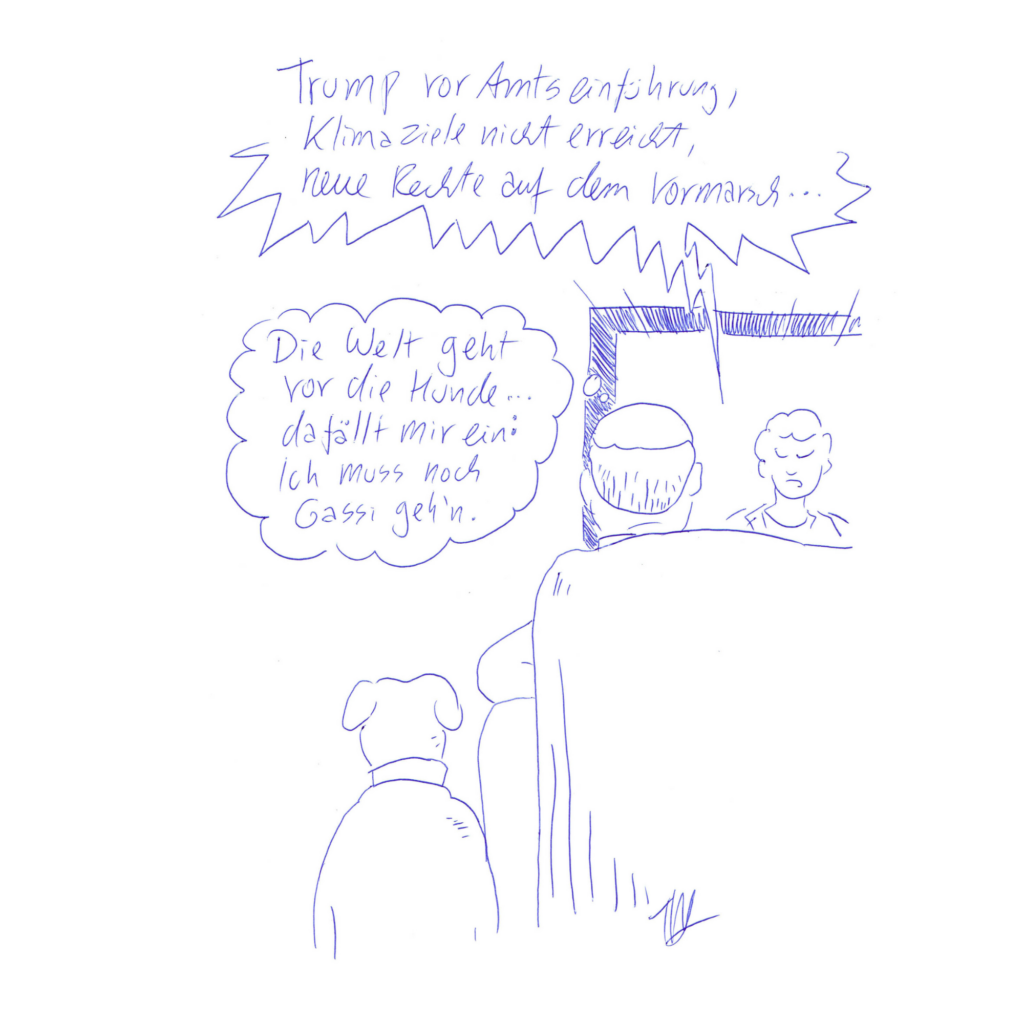 Trump vor Amtseinführung,
Klimaziele nicht erreicht,
neue Rechte auf dem Vormarsch...
Die Welt geht
vor die Hunde...
da fällt mir ein:
Ich muss noch
Gassi geh'n.